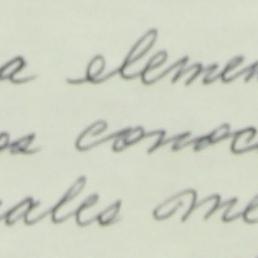 a elemen
os conoc
rales me